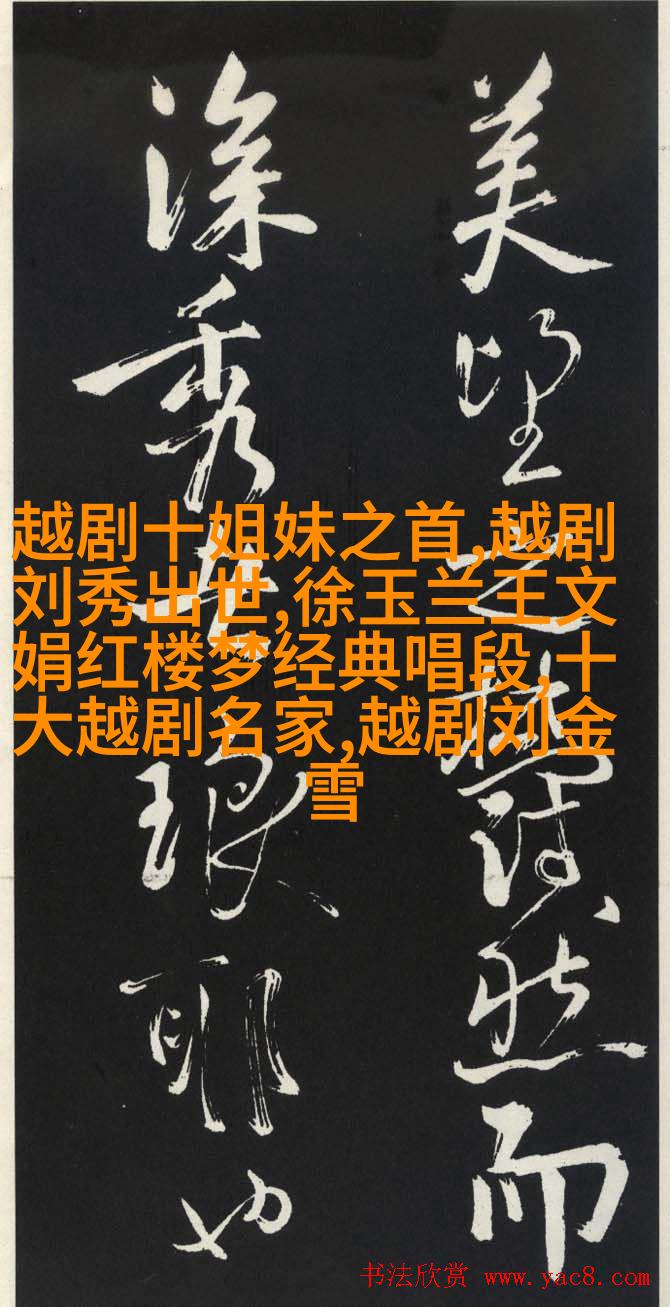 美望之蔚然而
深秀者琅耶也
越剧十姐妹之首,越剧
刘秀出世,徐玉兰王文
娟红楼梦经典唱段,十
大越剧名家,越剧刘金
雪
书法欣赏 www.yac8.com